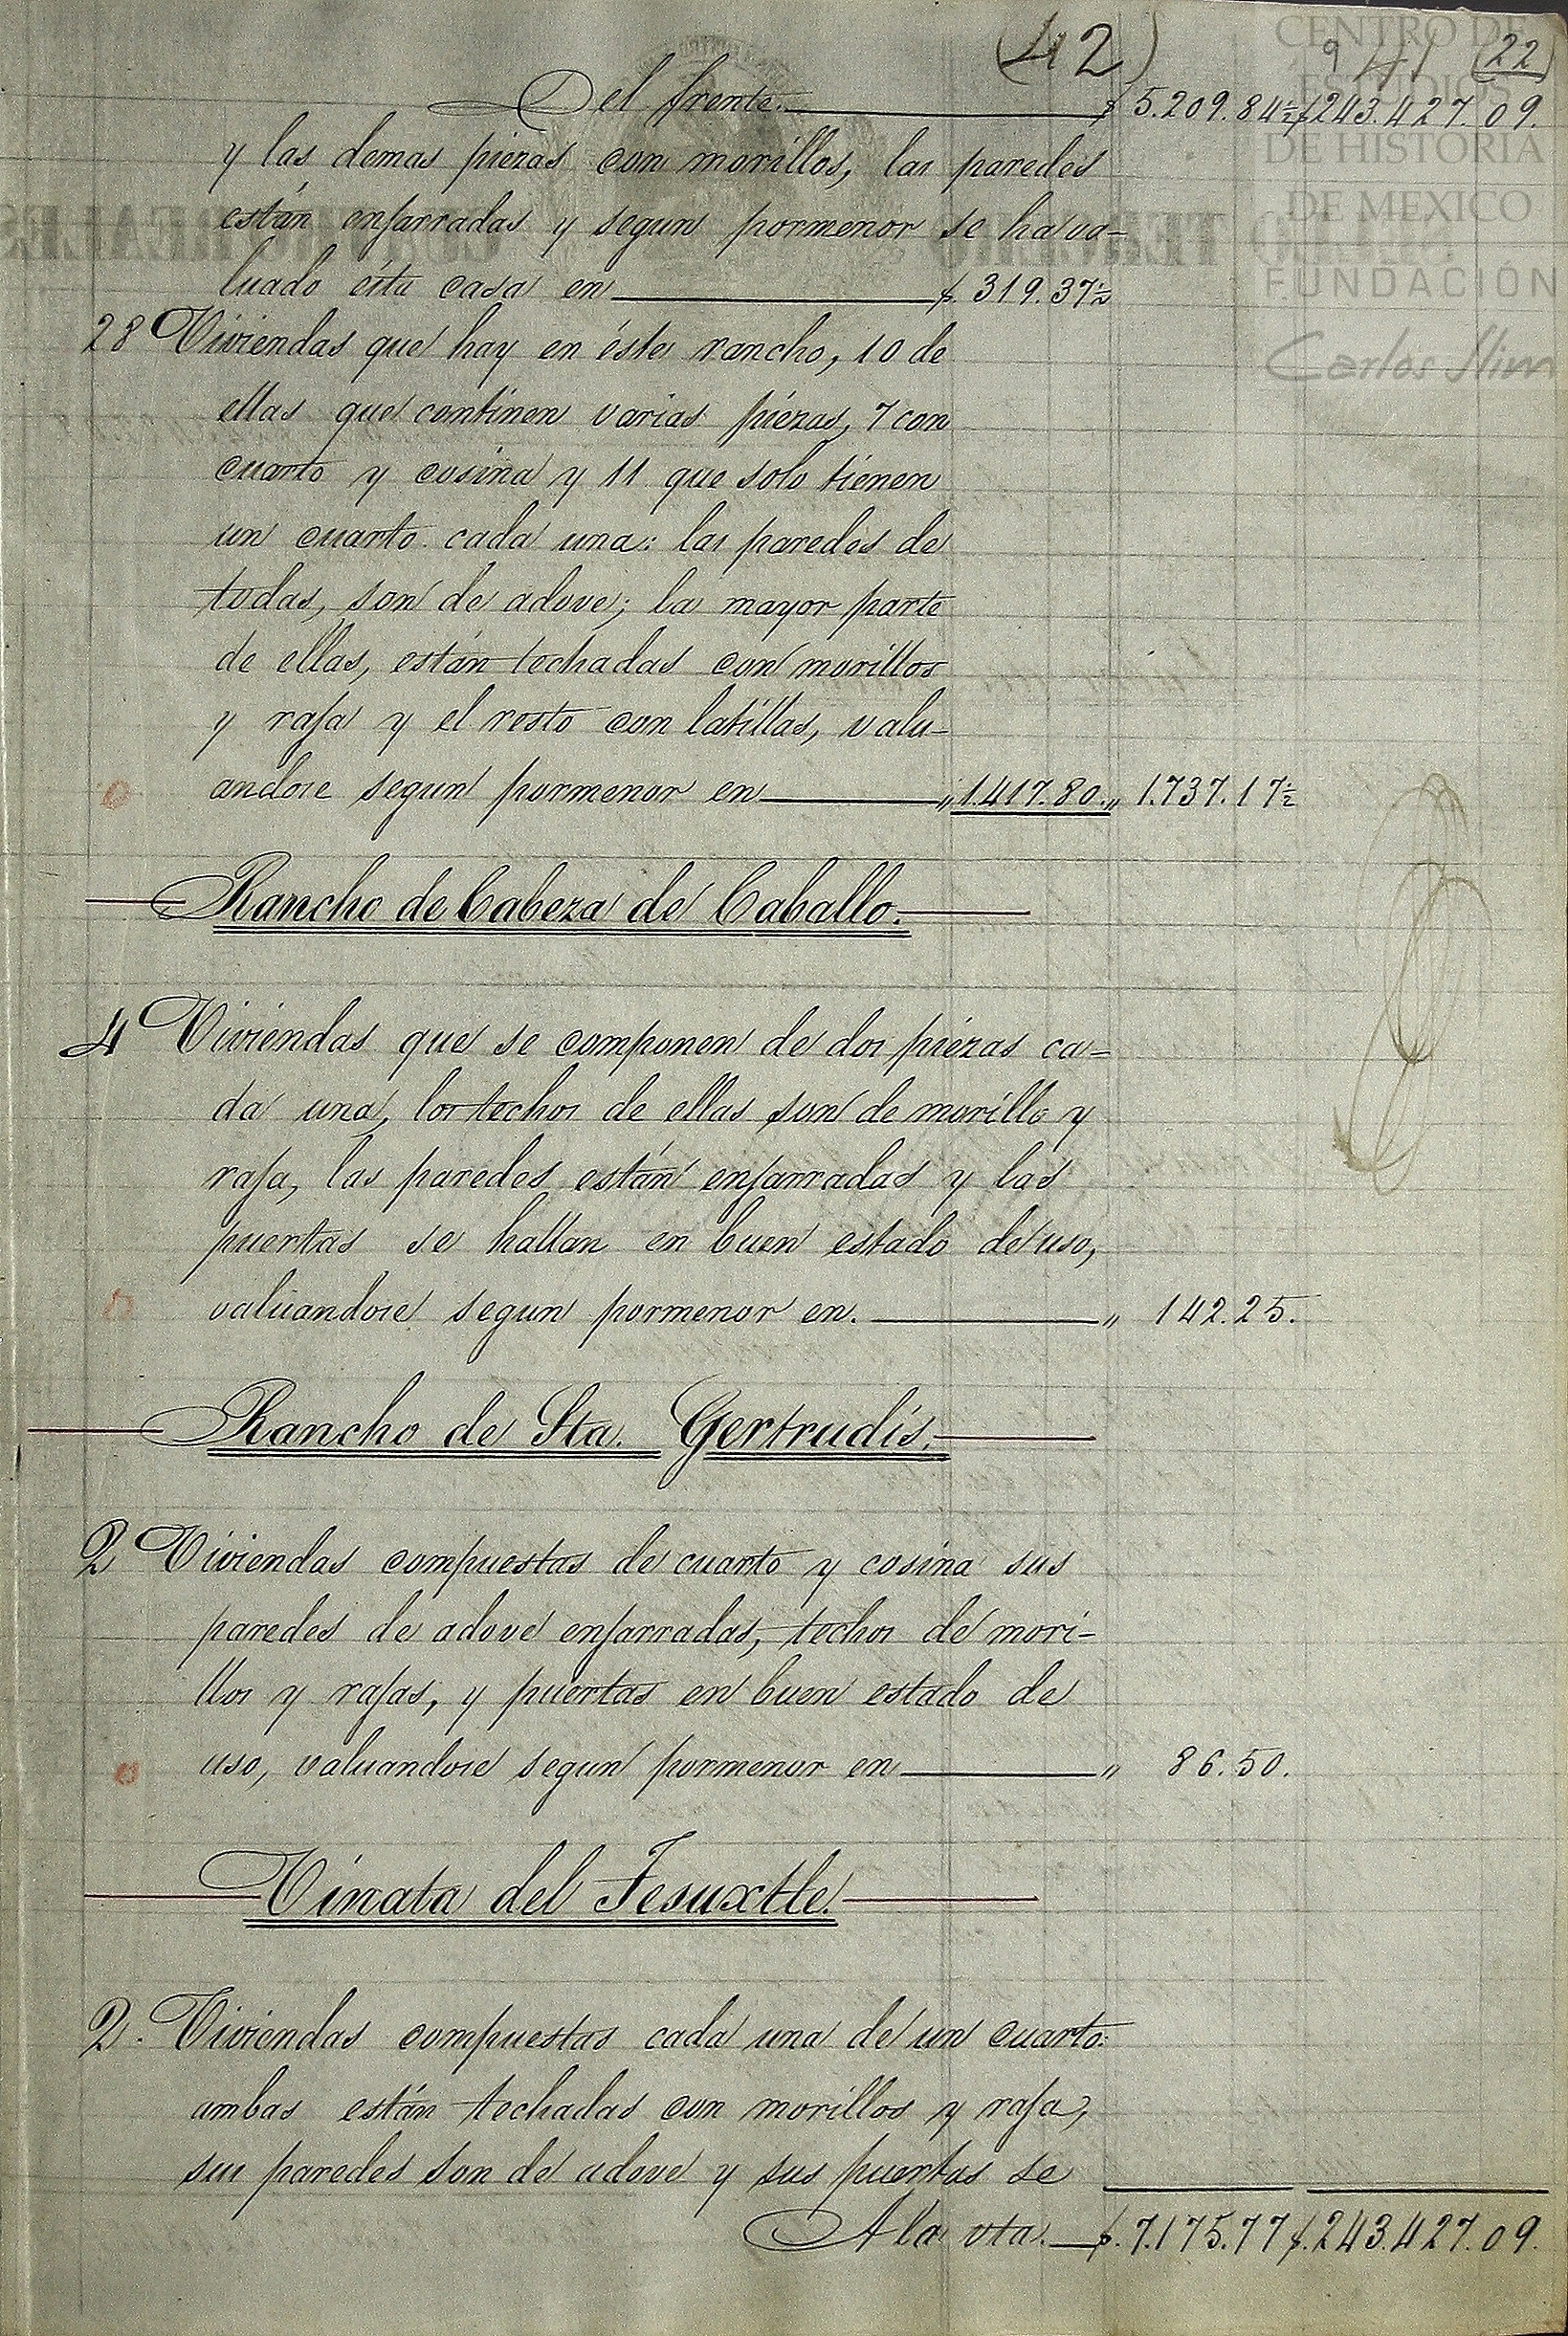 (42)
9 41 (22)
Del frente. $ 5.209.84½ $ 243.427.09.
y las demas piezas con morillos, las paredes
están enjarradas y segun pormenor se ha va-
luado ésta casa en $. 319.37½
28 Viviendas que hay en éste rancho, 10 de
ellas que continen varias piézas, 7 con
cuarto y cosina y 11 que solo tiénen
un cuarto cada una: las paredes de
todas, son de adove; la mayor parte
de ellas, están techadas con morillos
y rafa y el resto con latillas, valu-
andose segun pormenor en „ 1.417.80. „ 1.737.17½
Rancho de Cabeza de Caballo.
4 Viviéndas que se componen de dos piézas ca-
da una, los techos de ellas son de morillo y
rafa, las paredes están enjarradas y las
puertas se hallan en buen estado de uso,
valuandose segun pormenor en. „ 142.25.
Rancho de Sta. Gertrudis.
2 Viviendas compuestas de cuarto y cosina sus
paredes de adove enjarradas, techos de mori-
llos y rafas, y puertas en buen estado de
uso, valuandose segun pormenor en „ 86.50.
Vinata del Tesuxtle.
2. Viviendas compuestas cada una de un cuarto:
ambas están techadas con morillos y rafa,
sus paredes son de adove y sus puertas se
A la vta. $. 7.175.77 $. 243.427.09.
CENTRO DE
ESTUDIOS
DE HISTORIA
DE MEXICO
FUNDACIÓN
Carlos Slim